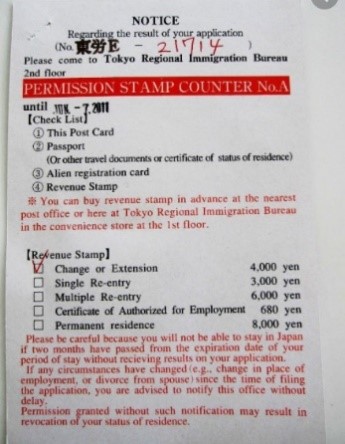 NOTICE
Regarding the result of your application
(No. 東労E - 21714 )
Please come to Tokyo Regional Immigration Bureau
2nd floor
PERMISSION STAMP COUNTER No.A
until -7.2011
【Check List】
① This Post Card
② Passport
(Or other travel documents or certificate of status of residence)
③ Alien registration card
④ Revenue Stamp
※ You can buy revenue stamp in advance at the nearest
post office or here at Tokyo Regional Immigration Bureau
in the convenience store at the 1st floor.
【Revenue Stamp】
☑ Change or Extension 4,000 yen
□ Single Re-entry 3,000 yen
□ Multiple Re-entry 6,000 yen
□ Certificate of Authorized for Employment 680 yen
□ Permanent residence 8,000 yen
Please be careful because you will not be able to stay in Japan
if two months have passed from the expiration date of your
period of stay without recieving results on your application.
If any circumstances have changed (e.g., change in place of
employment, or divorce from spouse) since the time of filing
the application, you are advised to notify this office without
delay.
Permission granted without such notification may result in
revocation of your status of residence.